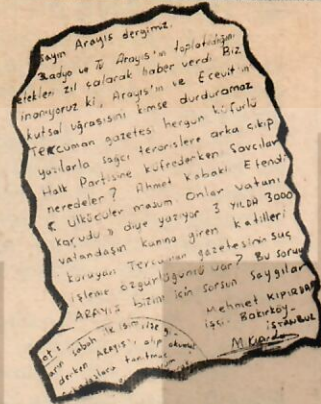 Sayın Arayış dergimiz.
Radyo ve TV Arayış'ın toplatıldığını
zil çalarak haber verdi Biz
inanıyoruz ki, Arayış'ın ve Ecevit'in
kutsal uğraşısını kimse durduramaz
Tercuman gazetesi hergun küfürlü
yazılarla sağcı teroristlere arka çıkıp
Halk Partisine küfrederken Savcılar
neredeler? Ahmet Kabaklı Efendi
Ülkücüler masum Onlar vatanı
korudu» diye yazıyor 3 YILDA 3000
vatandaşın kanına giren katilleri
koruyan Tercuman gazetesinin suç
işleme özgürlüğünü var? Bu soruyu
ARAYIŞ bizim için sorsun Saygılar
Mehmet KIPIRDAR
işçi. Bakırköy-
İSTANBUL
sabah ilk
derken ARAYIŞ'ı alıp okumak